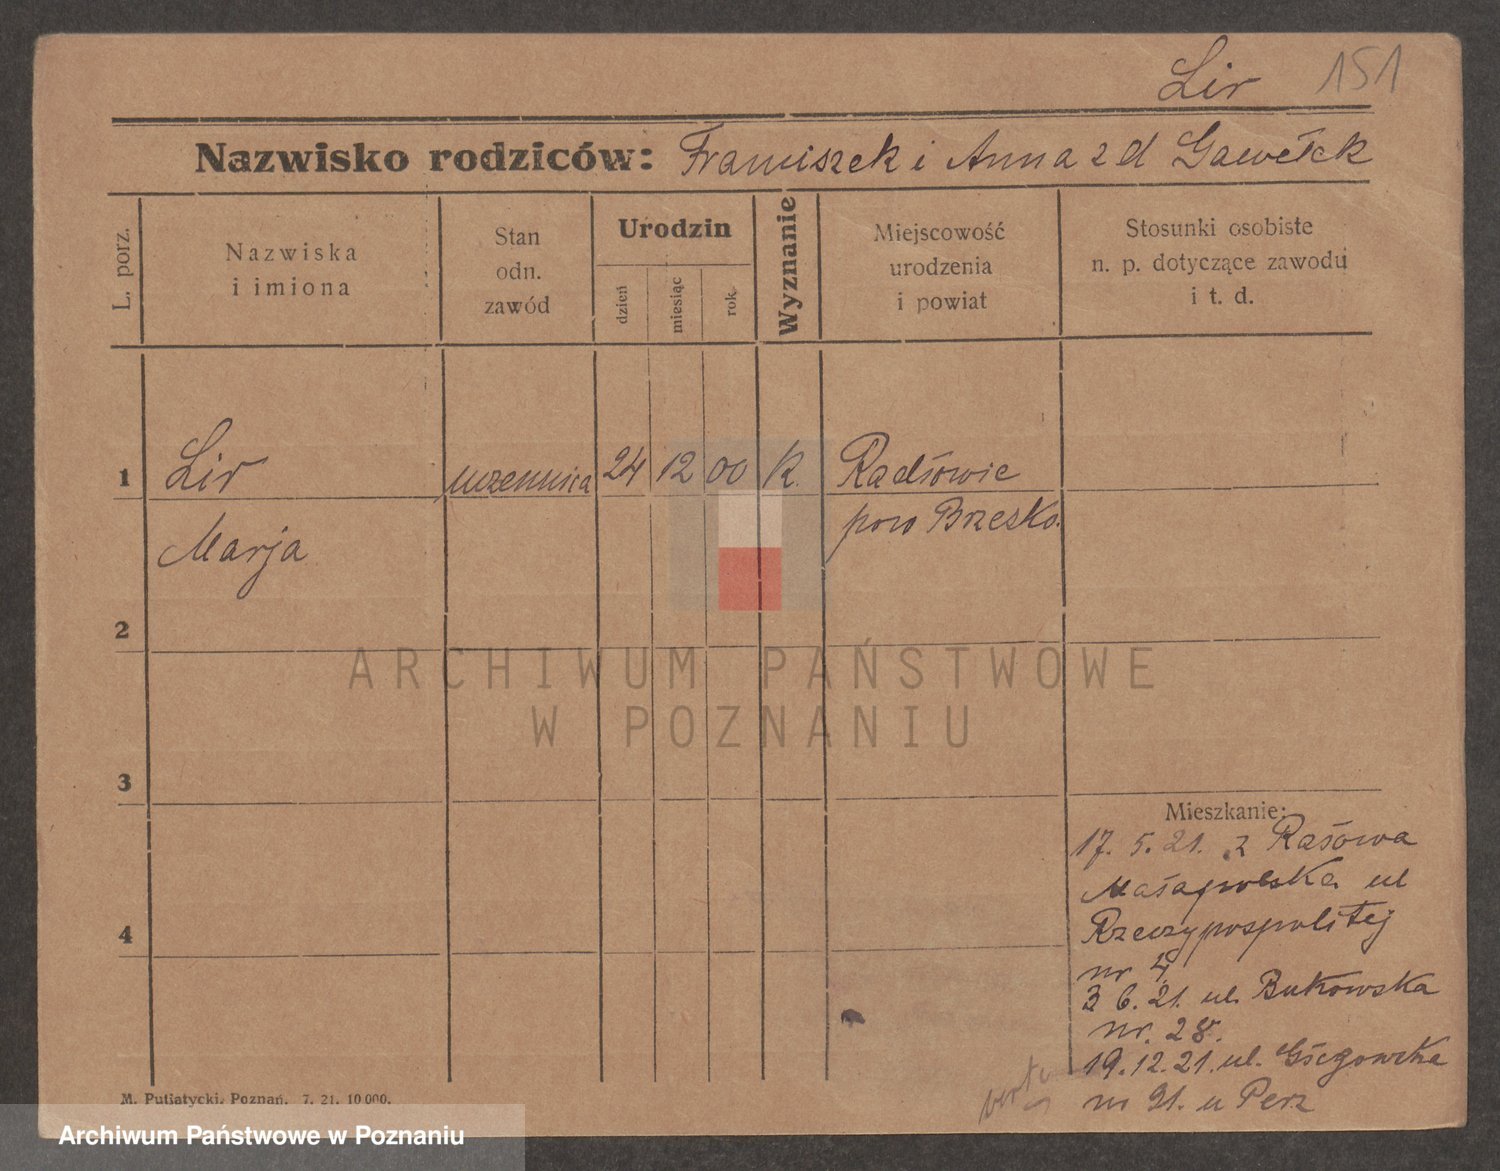 Lir 151
Nazwisko rodziców: Franciszek i Anna z d Gawełek
L. porz.
Nazwiska
i imiona
Stan
odn.
zawód
Urodzin
dzień
miesiąc
rok
Wyznanie
Miejscowość
urodzenia
i powiat
Stosunki osobiste
n. p. dotyczące zawodu
i t. d.
1 Lir uczennica 24 12 00 K. Radłowie
Marja pow Brzesko.
2
3
4
Mieszkanie:
17. 5. 21. z Rałowa
Małapolska ul
Rzeczypospolitej
nr 4.
3 6. 21. ul. Bukowska
nr. 28.
19. 12. 21. ul.
nr 31. u Perz
verte
M. Putiatycki, Poznań. 7. 21. 10 000.
ARCHIWUM PAŃSTWOWE
W POZNANIU
Archiwum Państwowe w Poznaniu